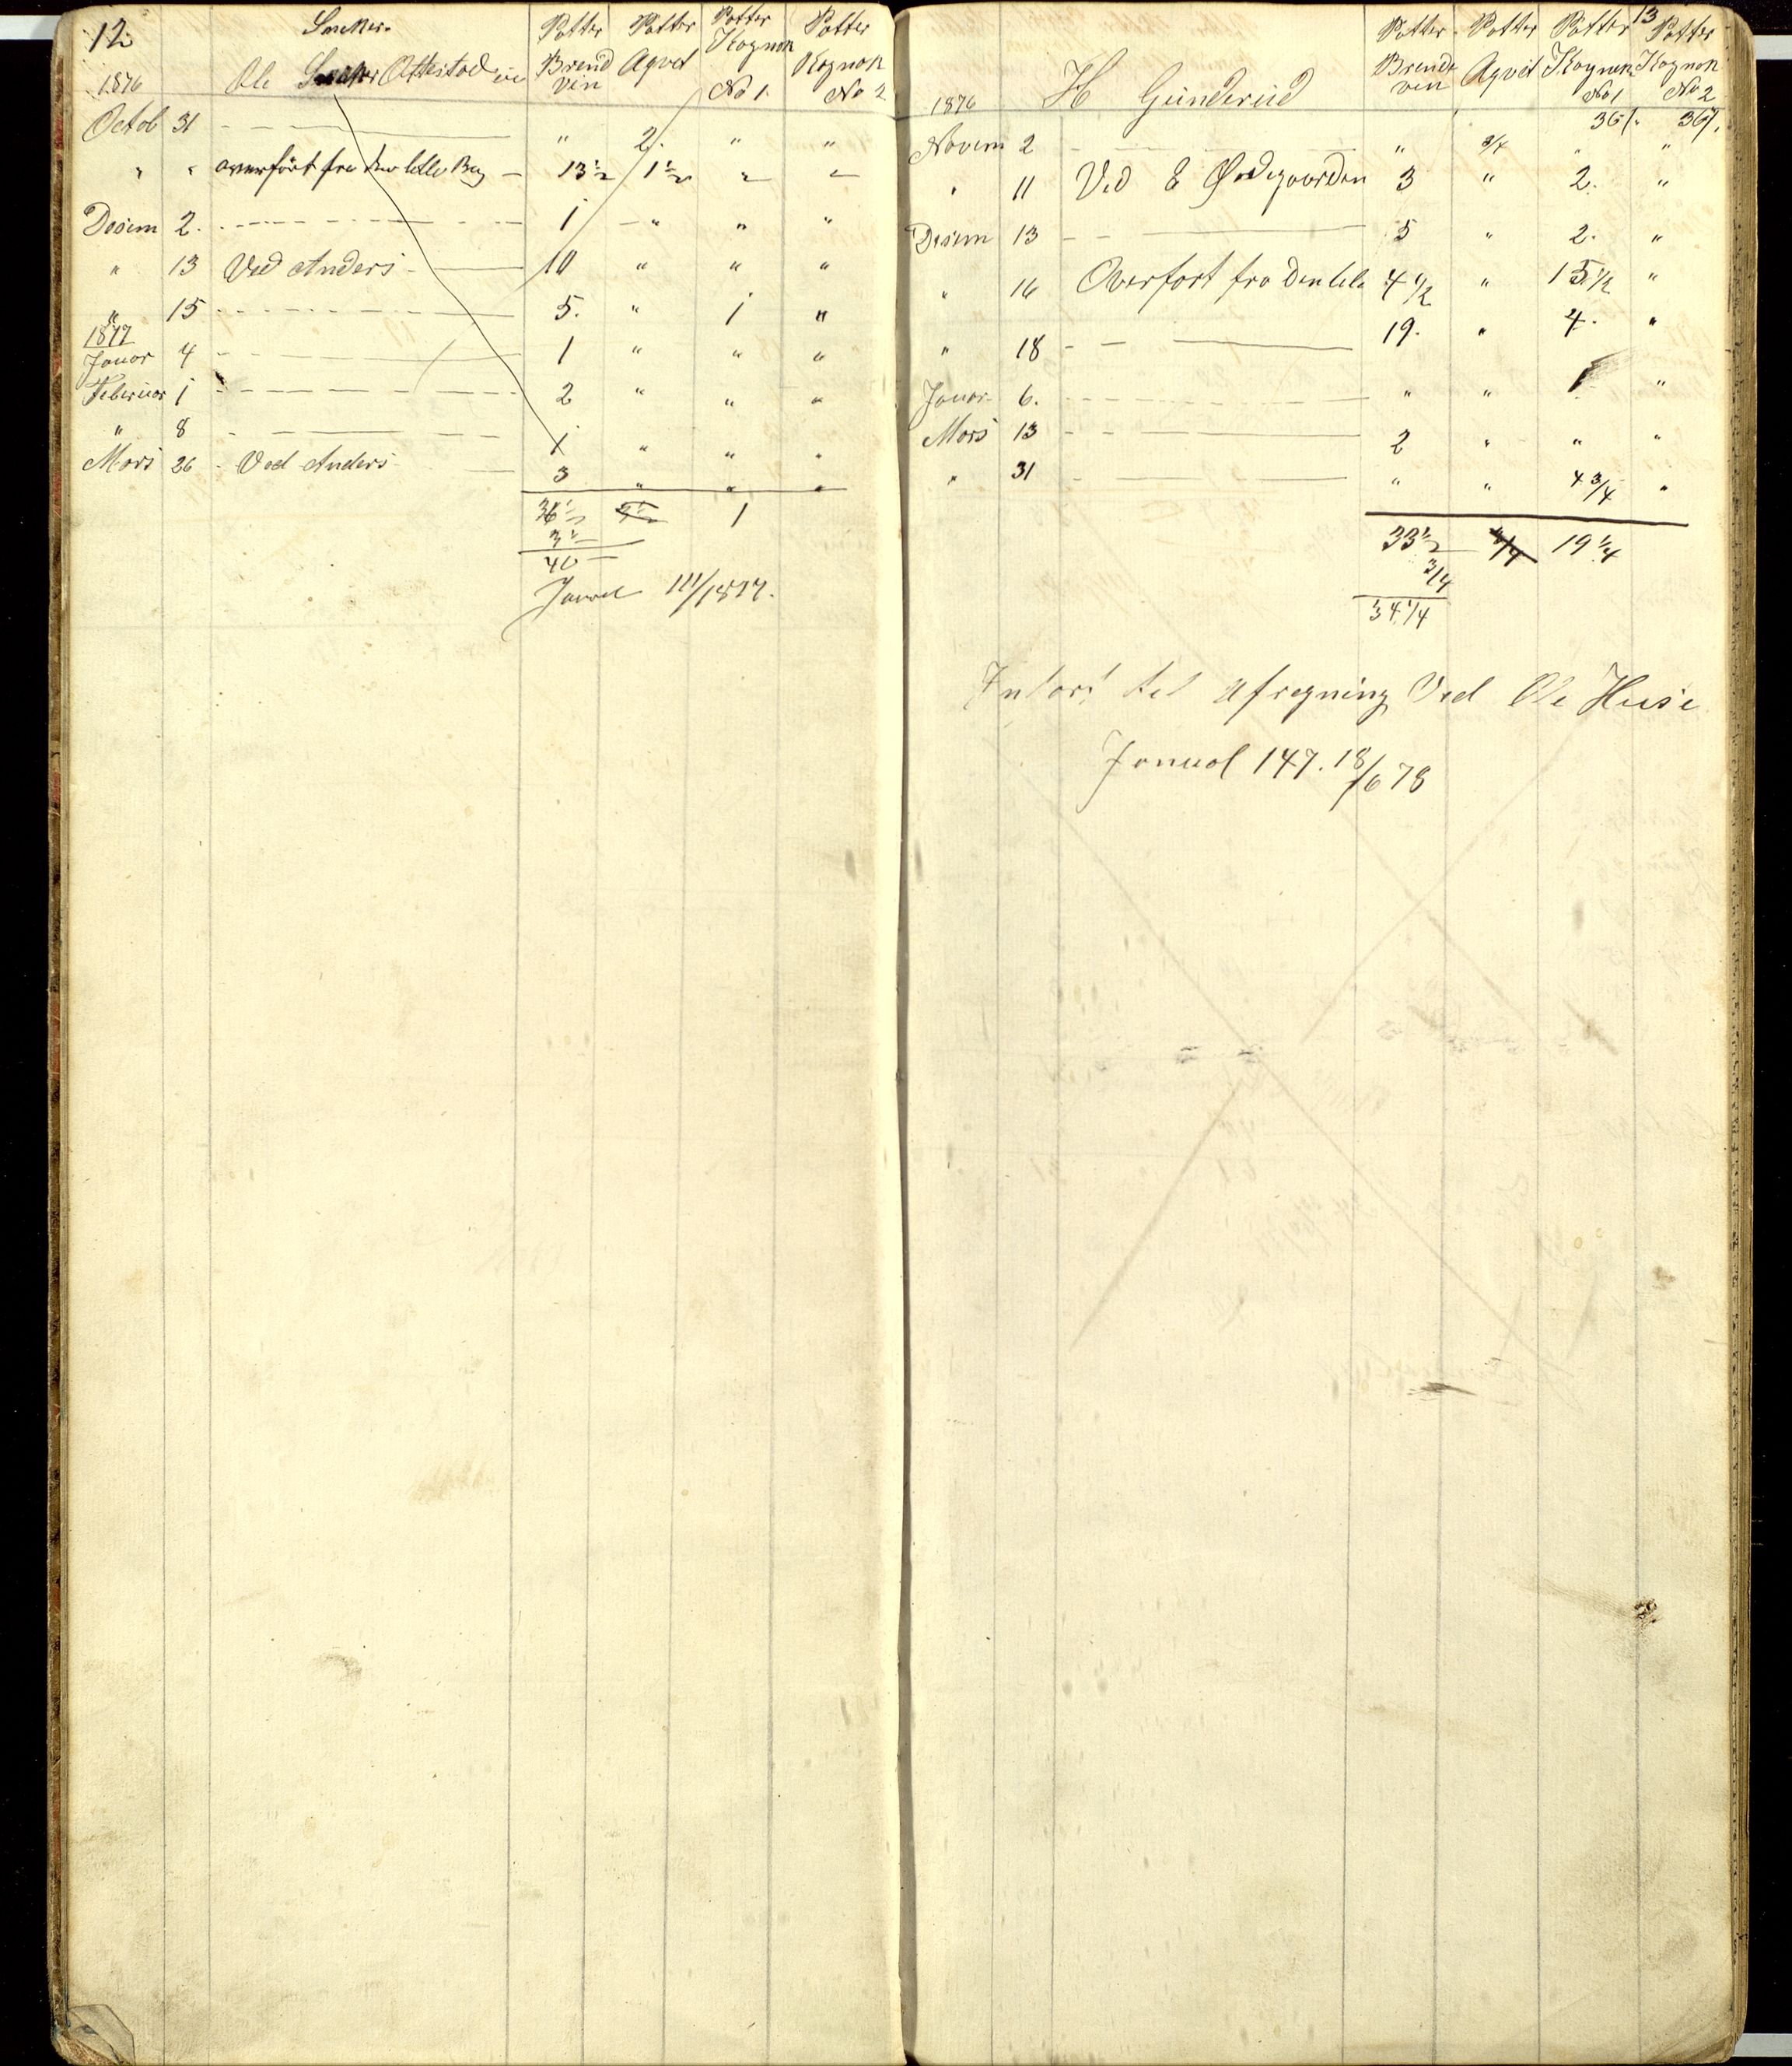 12
Sneker.
1876 Ole Attestad Potter Brend Vin Potter Aqvet Potter Kognak No 1. Potter Kognak No 2
Octob 31 - " 2. " "
" " overfört fra den lille Bog 13½ 1½ " "
Desem 2. - 1 " " "
" 13 Ved Anders 10 " " "
" 15 - 5. " 1 "
1877
Januar 4 - 1 " " "
Februar 1 - 2 " " "
" 8 - 1 " " "
Mars 26 Ved Anders 3 " " "
36½ 3½ 1
3½
40
111/1877.
13
1876 H Gunderud Potter Brende vin Potter Aqvet Potter Kognak No 1 Potter Kognak No 2
36/. 36/.
Novem 2 - " ¾ " "
" 11 Ved E Ødegaarden 3 " 2. "
Desem 13 - 5 " 2. "
" 16 Overfort fra den lile 4½ " 15½ "
" 18 - 19. " 4. "
Januar 6. - " " 1 "
Mars 13 - 2 " " "
" 31 - " " 4¾ "
33½ ¾ 19¼
¾
34¼
Intort til afregning Ved Ole Huse
Jonual 147. 18/6 78